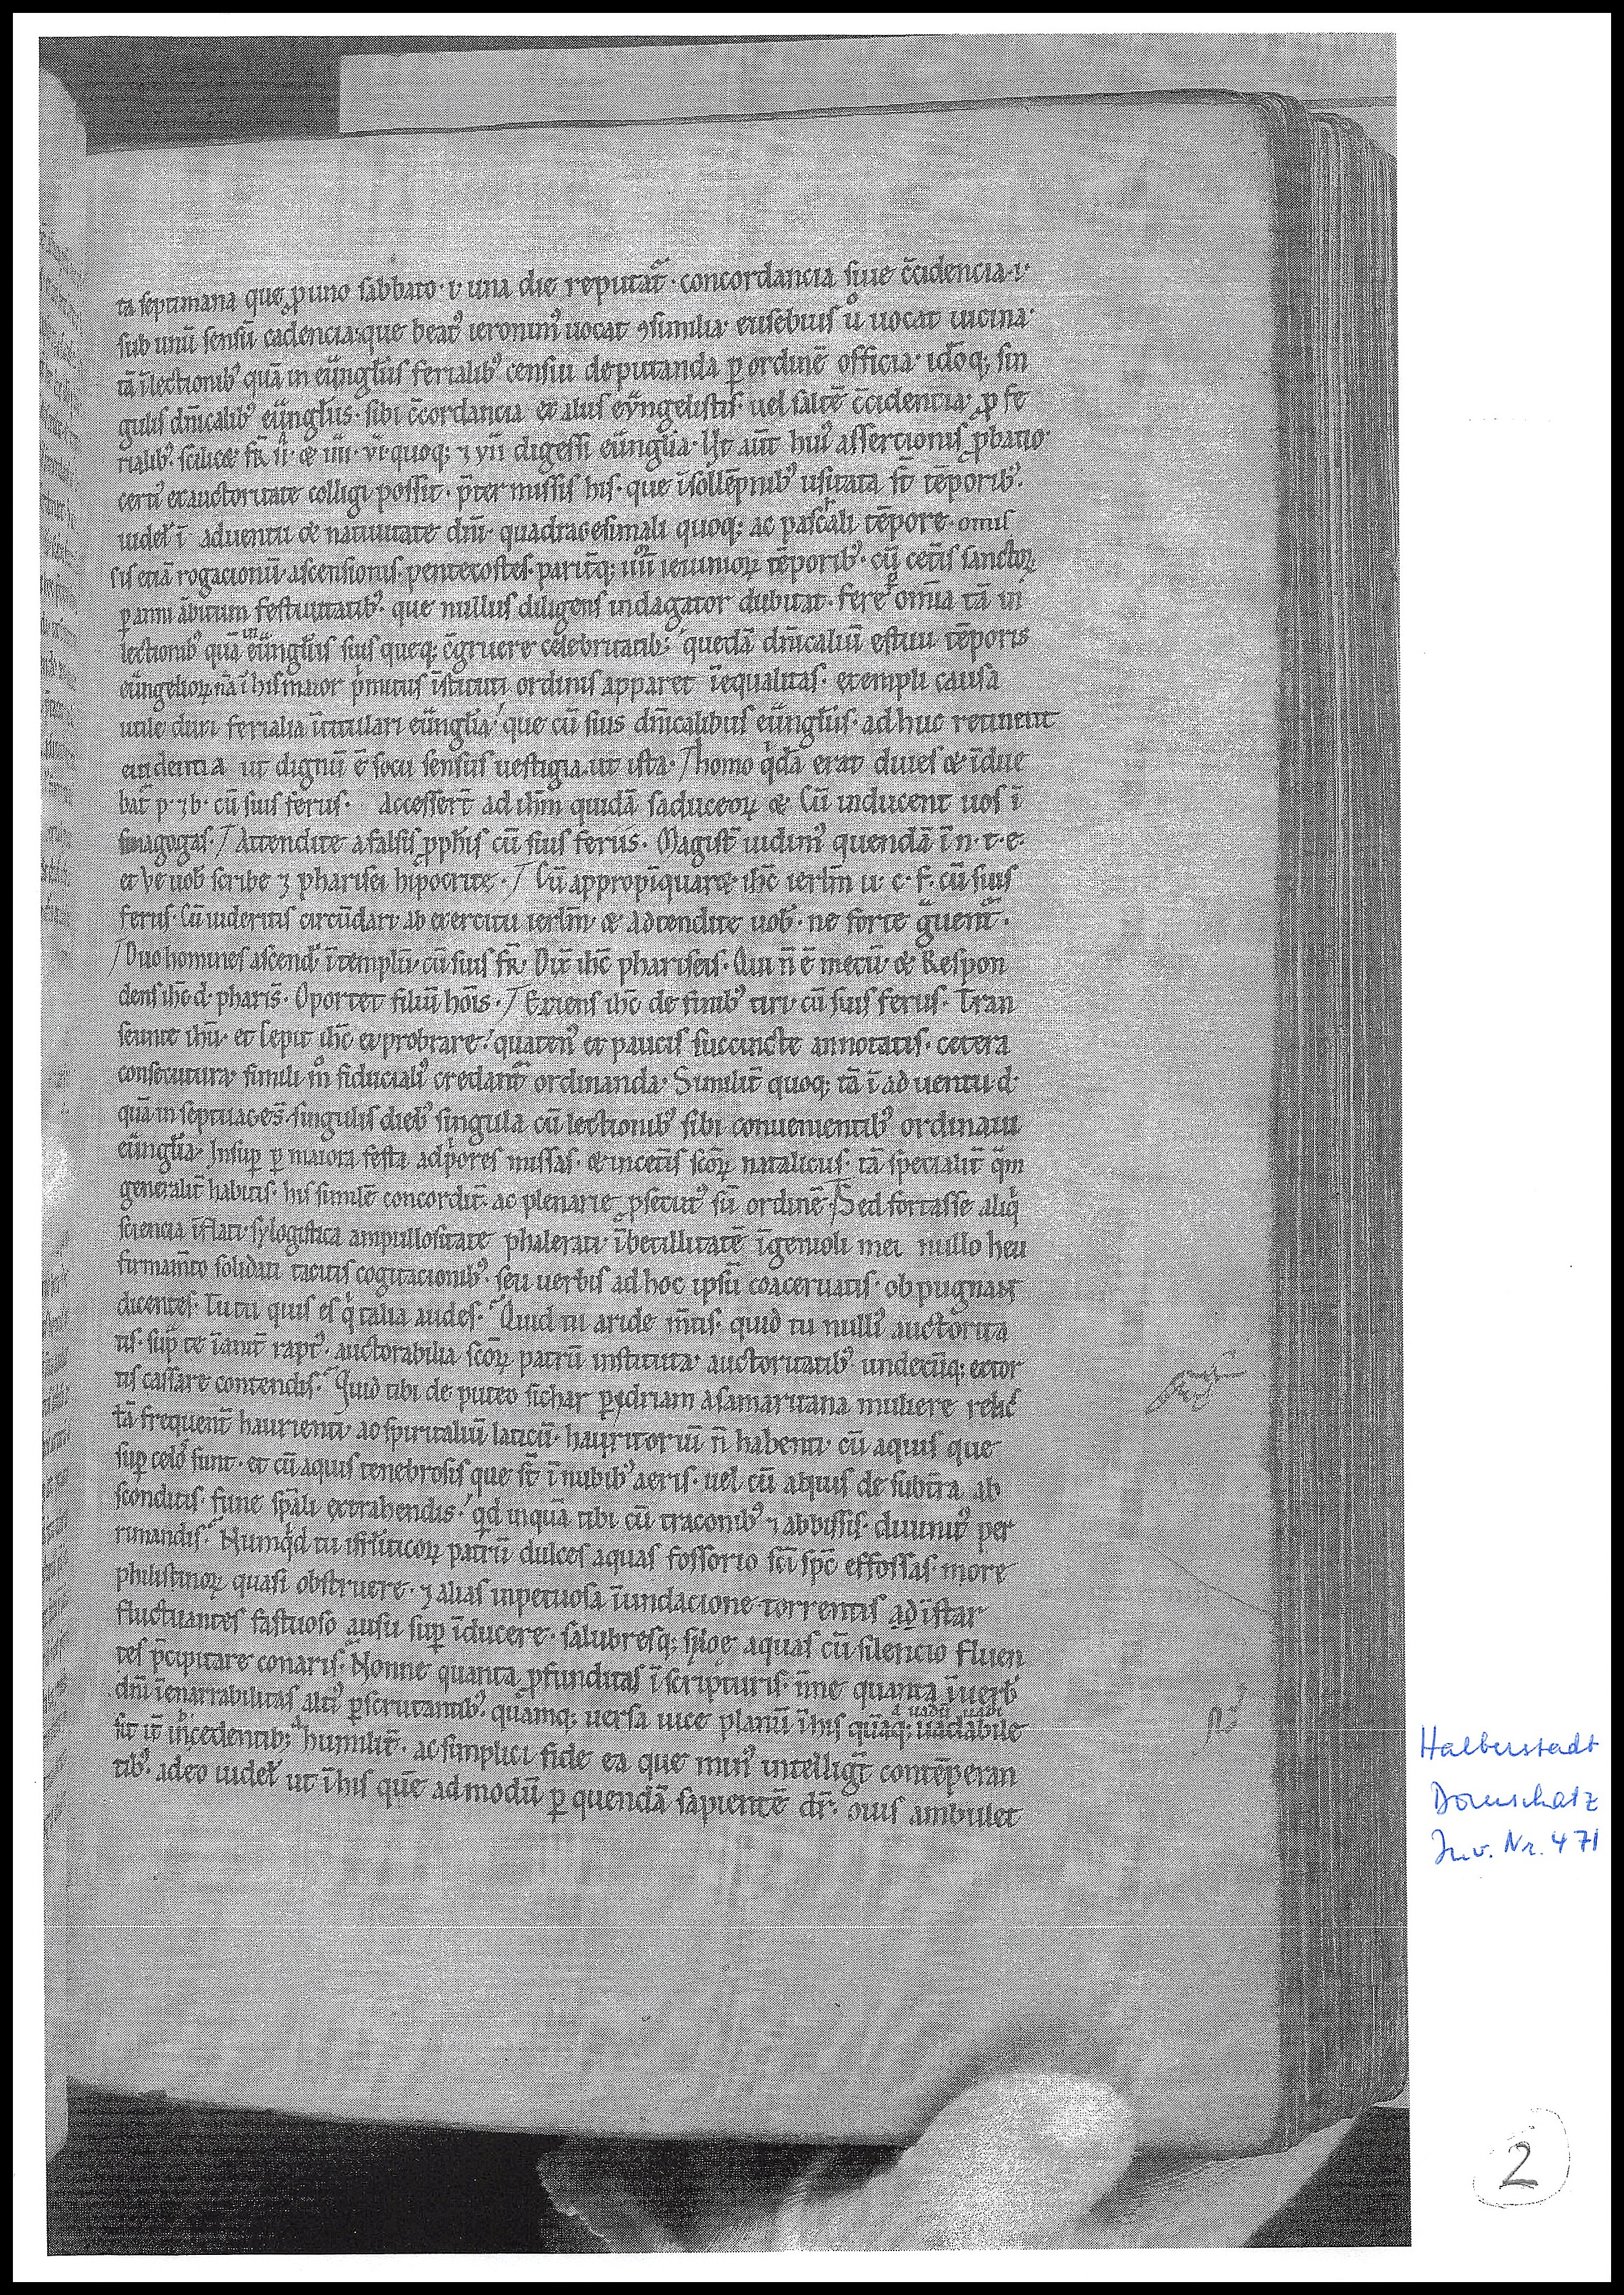 ta septimana que ꝓ uno sabbato · i · una die reputat᷑ · concordancia siue c̄cidencia · i ·
sub unū sensū cadencia · que beatꝰ ieronimꝰ uocat ꝯsimilia · eusebius uͦ uocat uicina ·
tā ī lectionibꝫ quā in eu̅ngliis ferialibꝫ censui deputanda ꝑ ordinē officia · idoq; sin
gulis dn̄icalibꝫ eu̅ngliis · sibi c̄cordancia et aliis eu̅ngelistis · uel saltē c̄cidencia · ꝓ fe
rialibꝫ · scilicet fr̄ ii · et iiii · vi · quoq; ⁊ vii digessi eu̅nglia · Ut aūt huiꝰ assertionis ꝓbatio
certiꝰ et auctoritate colligi possit · p̄termissis his · que ī sollēpnibꝫ usitata st̄ tēporibꝫ ·
uidelꝫ ī aduentu et natiuitate dn̄i · quadragesimali quoq; ac paschali tēpore · omis
sis etiā rogacionū · ascensionis · pentecostes · parit̄q; iiiioꝝ ieiunioꝝ tēporibꝫ · cū cet̄is sanctoꝝ
ꝑ anni ābitum festiuitatibꝫ · que nullus diligens indagator dubitat · fere om̄ia tā in
lectionibꝫ quā in eu̅ngliis suis queq; c̄gruere celebritatibꝫ · quedā dn̄icaliū estiui tēporis
eu̅ngelioꝝ nā ī his maior pͥmitus īstituti ordinis apparet īequalitas · et empli causa
utile duxi ferialia ītitulari eu̅nglia · que cū suis dn̄icalibus eu̅ngliis · ad huc retinent
euidentia ut dignū ē socii sensus uestigia · ut ista · / homo qͥdā erat diues et īdue
bat᷑ p · ⁊ b · cū suis feriis · Accesser̄t ad ih̄m quidā saduceoꝝ et Cū inducent uos ī
sinagogas · / Attendite a falsis ꝓph̄is cū suis feriis · Magist̄ uidimꝰ quendā ī n · t · e ·
et Ve uob̄ scribe ⁊ pharisei hipocrite · / Cū appropīquaret ih̄c ierlm̄ u · c · f · cū suis
feriis · Cū uideritis circūdari ab exercitu ierlm̄ · et Adtendite uob̄ · ne forte g̈uent᷑ ·
/ Duo homines ascendꝫ ī templū · cū suis fr̄ · Dix̄ ih̄c phariseis · Qui n̄ ē mecū · et Respon
dens ih̄c d · pharis̄ · Oportet filiū hōis · / Exiens ih̄c de finibꝫ tiri · cū suis feriis · Tran
seunte ih̄u · et Cepit ih̄c exprobrare · quatenꝰ et paucis succincte annotatis · cetera
consecutura · simili mͦ fiducialiꝰ credant᷑ ordinanda · Similit̄ quoq; tā ī aduentu d ·
quā in septuages̄ · singulis diebꝫ singula cū lectionibꝫ sibi conuenientibꝫ ordinaui
eu̅nglia · Insuꝑ ꝑ maiora festa ad pͥores missas · et in cet̄is scōꝝ nataliciis · tā specialit̄ q̄m
generalit̄ habitis · his similē concordit̄ · ac plenarie ꝓsecutꝰ sū ordinē · / Sed fortasse aliqͥ
sciencia īflati · sylogistica ampullositate phalerati · ībecillitatē īgenioli mei nullo heu
firmam̄to solidati tacitis cogitacionibꝫ · seu uerbis ad hoc ipsū coaceruatis · obpugnant
dicentes · Tu tu quis es qͥ talia audes · Quid tu aride m̄tis · quid tu nulliꝰ auctorita
tis · suꝑ te īanit̄ raptꝰ · auctorabilia scōꝝ patrū instituta · auctoritatibꝫ undecūq; extor
tis cassare contendis · Quid tibi de puteo sichar ꝑ ydriam a samaritana muliere relic
tā frequent̄ haurienti · ac spiritaliū laticū · hauritoriū n̄ habenti · cū aquis que
suꝑ celos sunt · et cū aquis tenebrosis que st̄ ī nubibꝫ aeris · uel cū aquis de subt̄ra ab
sconditis · fune spāli extrahendis · qͥd inquā tibi cū traconibꝫ ⁊ abbissis · diuinitꝰ per
rimandis · Numqͥd tu isrl̄iticoꝝ patrū dulces aquas fossorio sc̄i spc̄ effossas · more
philistinoꝝ quasi obstruere · ⁊ alias inpetuosa īundacione torrentis ad īstar
fluctuantes fastuoso ausu suꝑ īducere · salubresq; syloe aquas cū silencio fluen
tes p̄cipitare conaris · Nonne quanta ꝓfunditas ī scripturis · n̄ne quanta ī uerb̄
dn̄i īenarrabilitas altiꝰ ꝑscrutantibꝫ · quāmq; uersa uice planū ī his quāq; uadabile
sit it̄ incedentibꝫ · humilit̄ · ac simplici fide ea que minꝰ intelligt̄ contēperan
tibꝫ · adeo uidelꝫ ut ī his quē admodū ꝑ quendā sapientē dr̄ · ouis ambulet
Halberstadt
Domschatz
Inv. Nr. 471
2